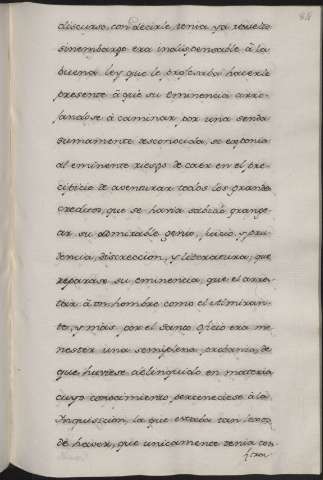 discurso, con decirle tenia ya resuelto
sinembargo era indispensable à la
buena ley que le profesaba hacerle
presente à que su Eminencia arro-
jandose à caminar por una senda
sumamente desconocida, se exponia
al eminente riesgo de caer en el pre-
cipicio de aventurar todos los grandes
creditos, que se havia sabido grange-
ar su admirable genio, juicio y pru-
dencia, discreccion, y literatura, que
reparase su eminencia, que el arres-
tar à un hombre como el Almiran-
te, y mas por el Santo Oficio era me-
nester una semiplena probanza, de
que huviese delinquido en materia
cuyo conocimiento perteneciese à la
Inquisicion, la que estaba tan lexos
de haver, que unicamente tenia con-